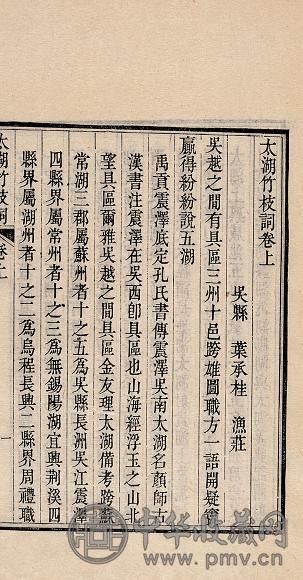 太湖竹枝詞卷上
吳縣 葉承桂 漁莊
吳越之間有具區三州十邑跨雄圖職方一語開疑竇
贏得紛紛說五湖
禹貢震澤底定孔氏書傳震澤吳南太湖名顏師古
漢書注震澤在吳西卽具區也山海經浮玉之山北
望具區爾雅吳越之間具區金友理太湖備考跨蘇
常湖三郡屬蘇州者十之五爲吳縣長洲吳江震澤
四縣界屬常州者十之三爲無錫陽湖宜興荆溪四
縣界屬湖州者十之二爲烏程長興二縣界周禮職
太湖竹枝詞 卷上
一
中华收藏网
www.pmv.cn